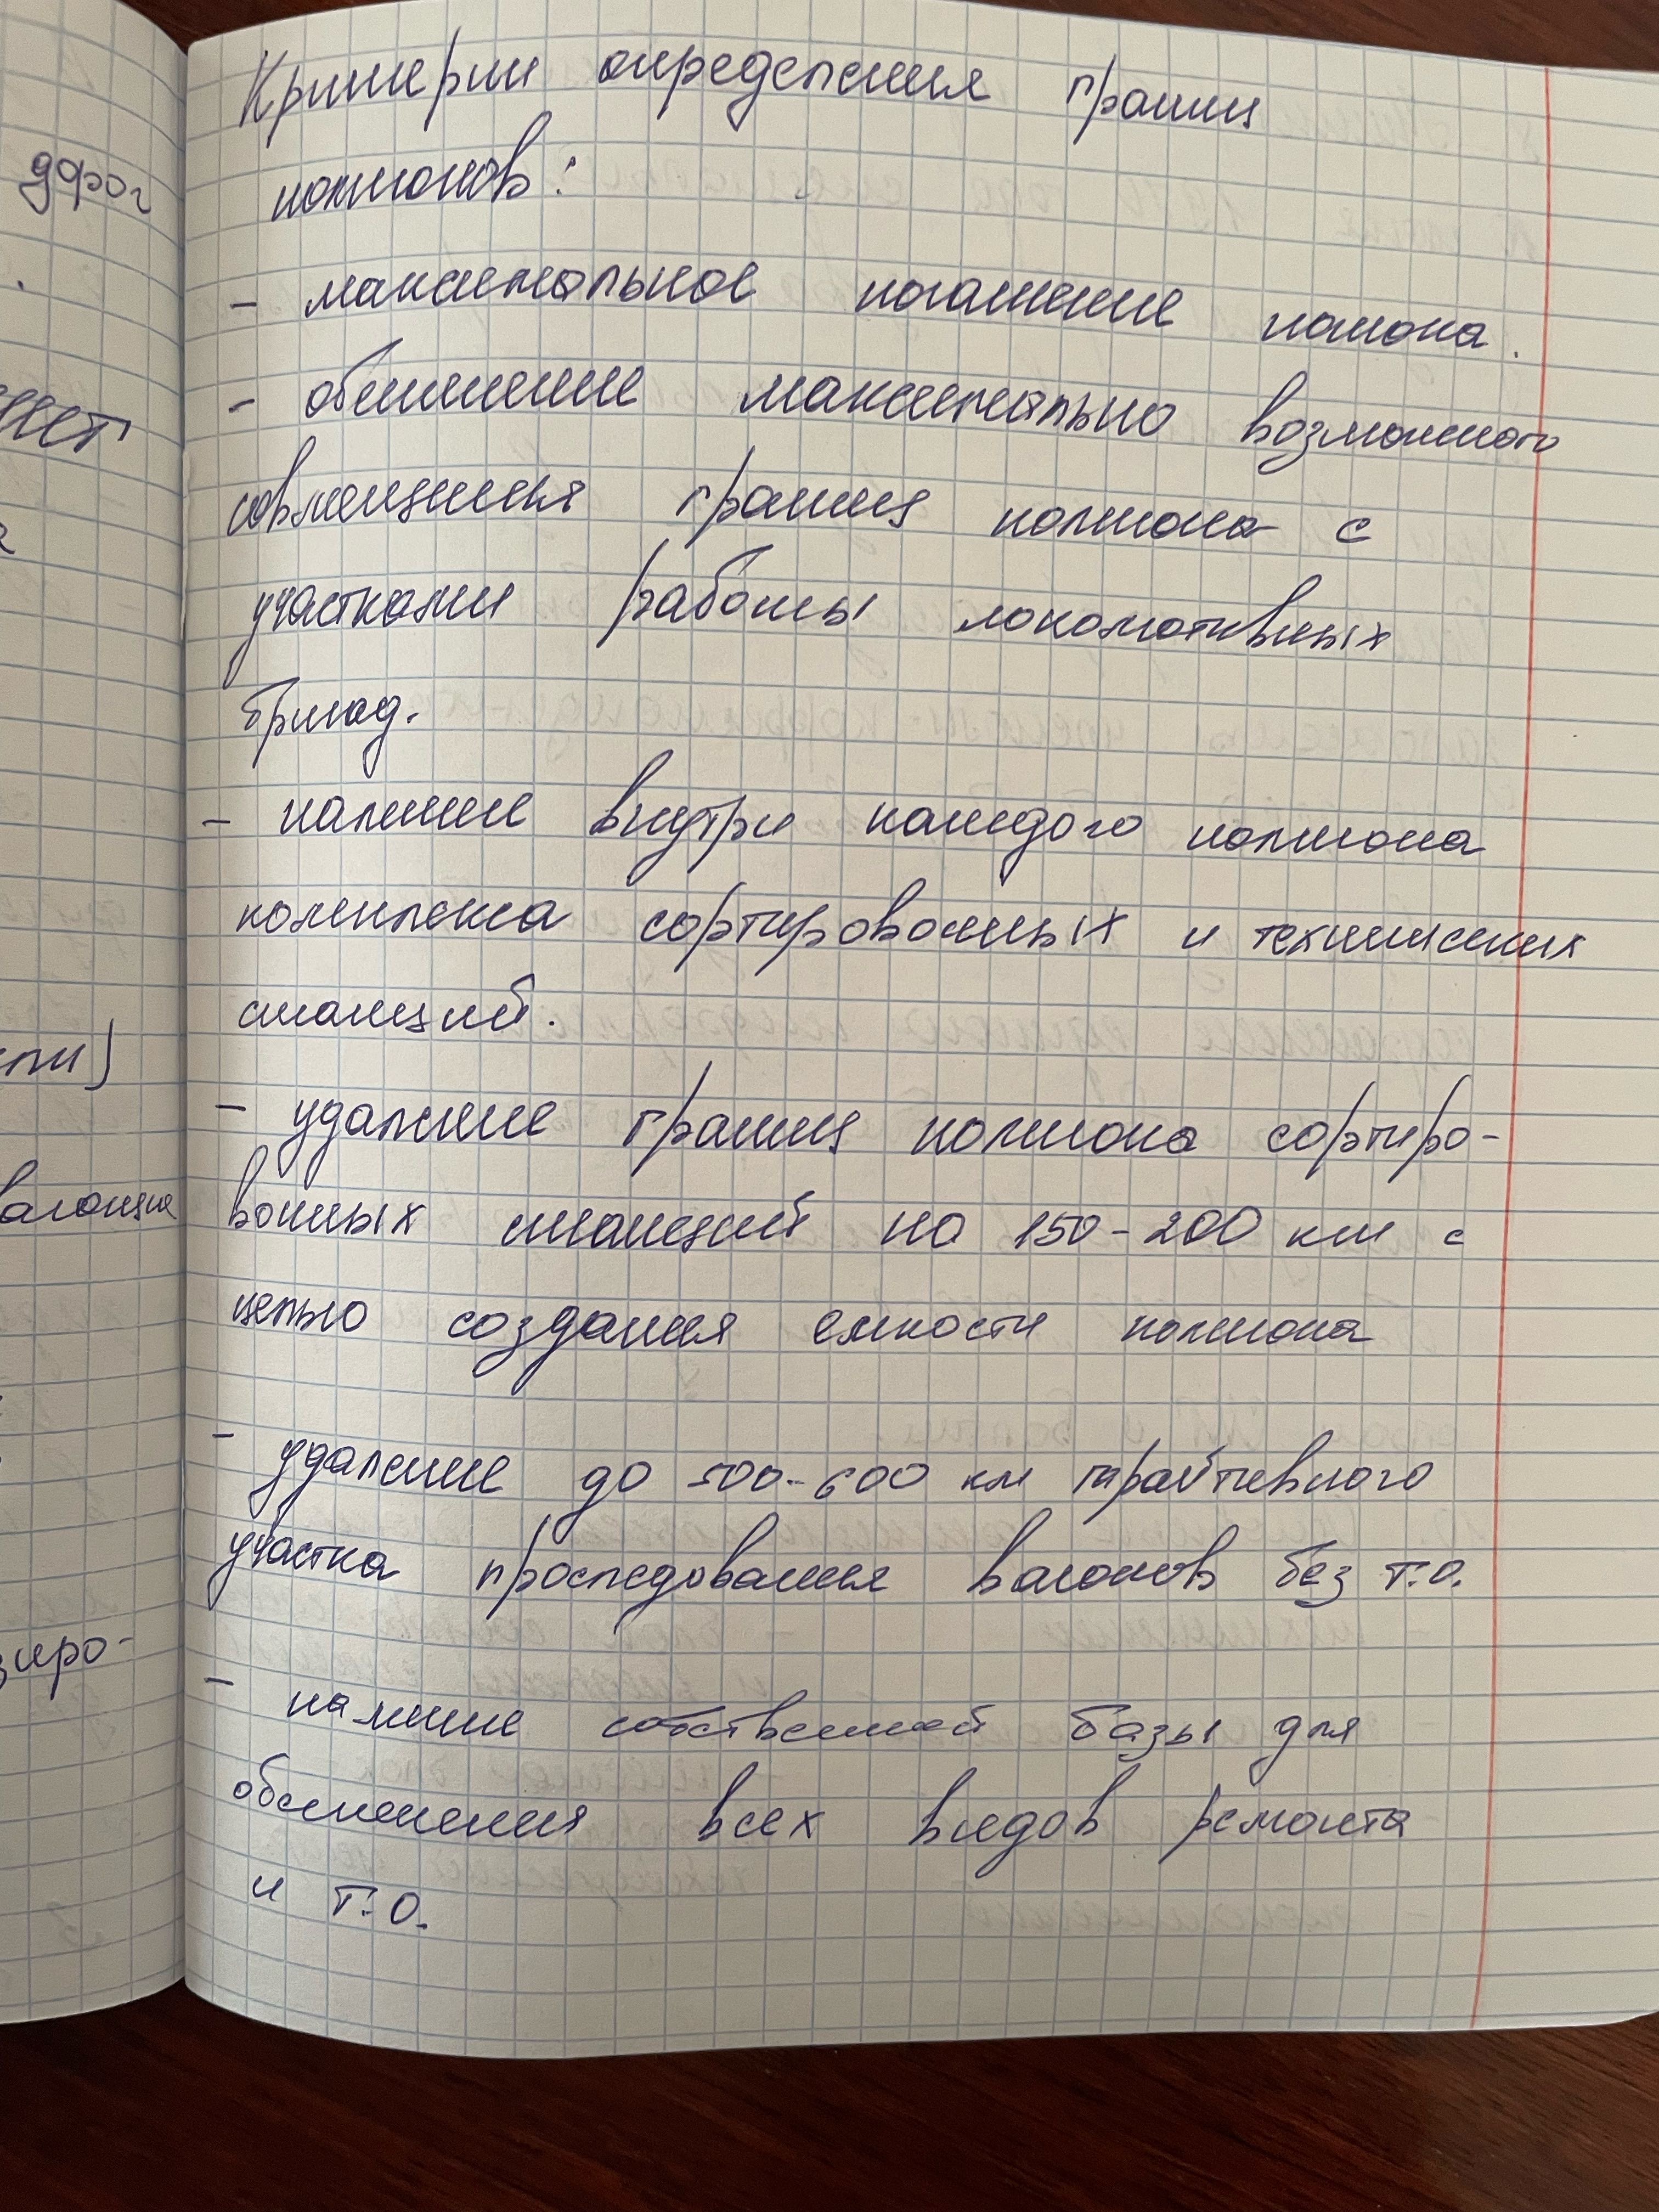 дорог
Критерии определения границ
полигонов:
- максимальное погашение потока.
- обеспечение максимально возможного
совмещения границ полигона с
участками работы локомотивных
бригад.
- наличие внутри каждого полигона
комплекса сортировочных и технических
станций.
- удаление границ полигона сортиро-
вочных станций на 150-200 км с
целью создания емкости полигона
- удаление до 500-600 км гарантийного
участка проследования вагонов без т.о.
- наличие собственной базы для
обеспечения всех видов ремонта
и т.о.